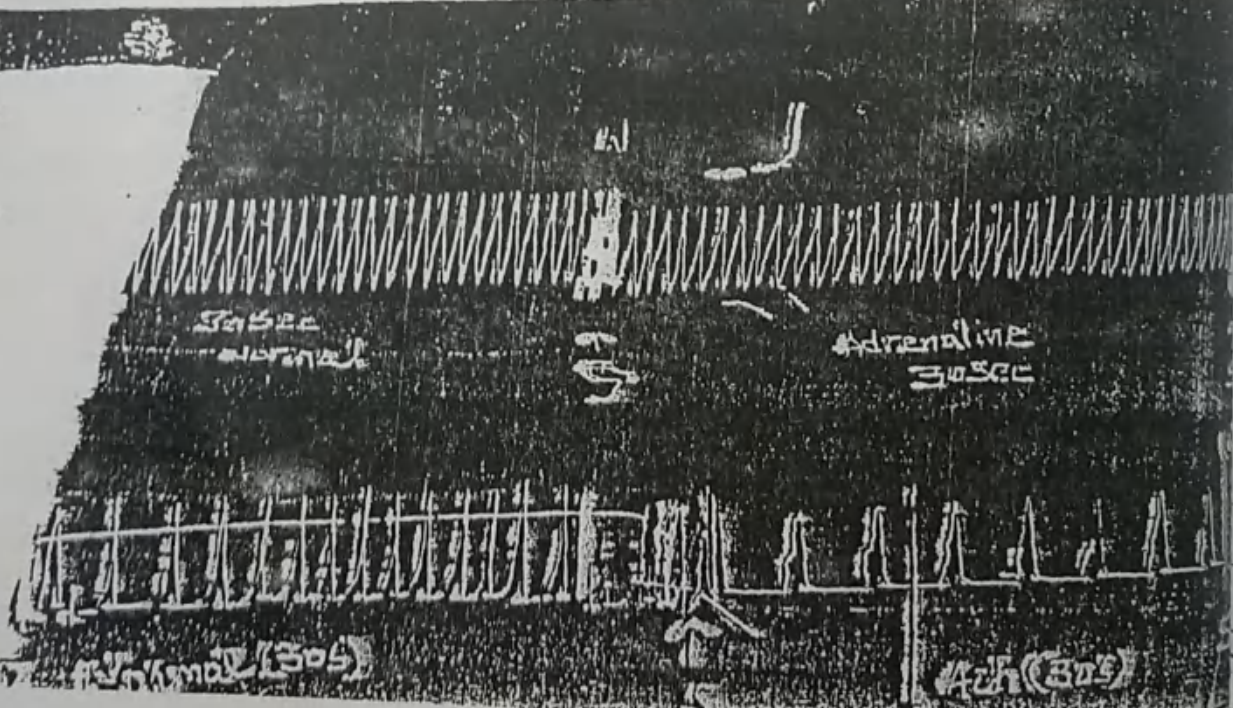 30sec
Normal
Adrenaline
30sec
Normal (30s)
Ach (30s)